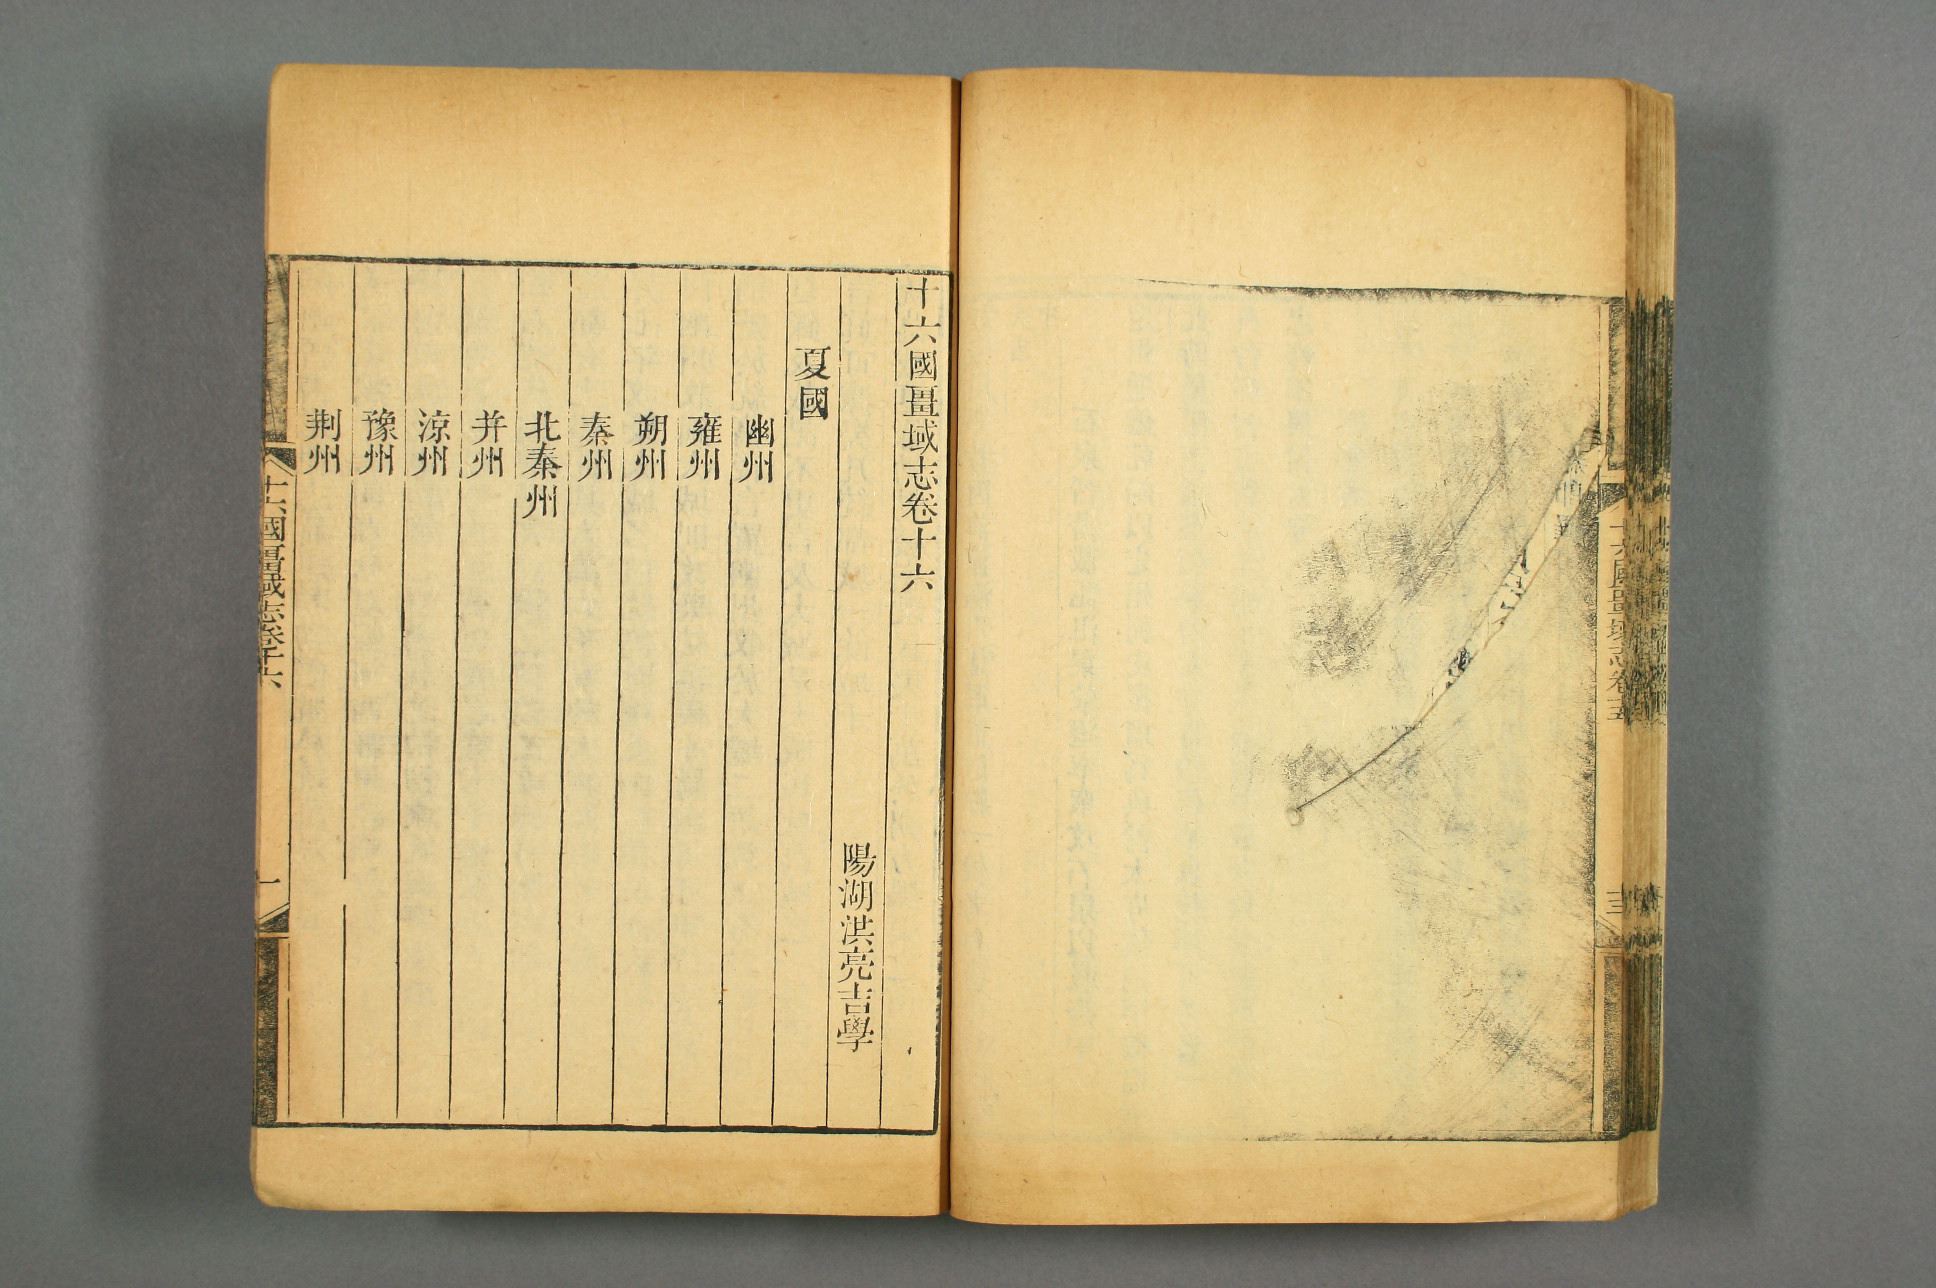 十六國畺域志卷十五
十三
十六國畺域志卷十六
陽湖洪亮吉學
夏國
幽州
雍州
朔州
秦州
北秦州
并州
涼州
豫州
荆州
十六國畺域志卷十六
一